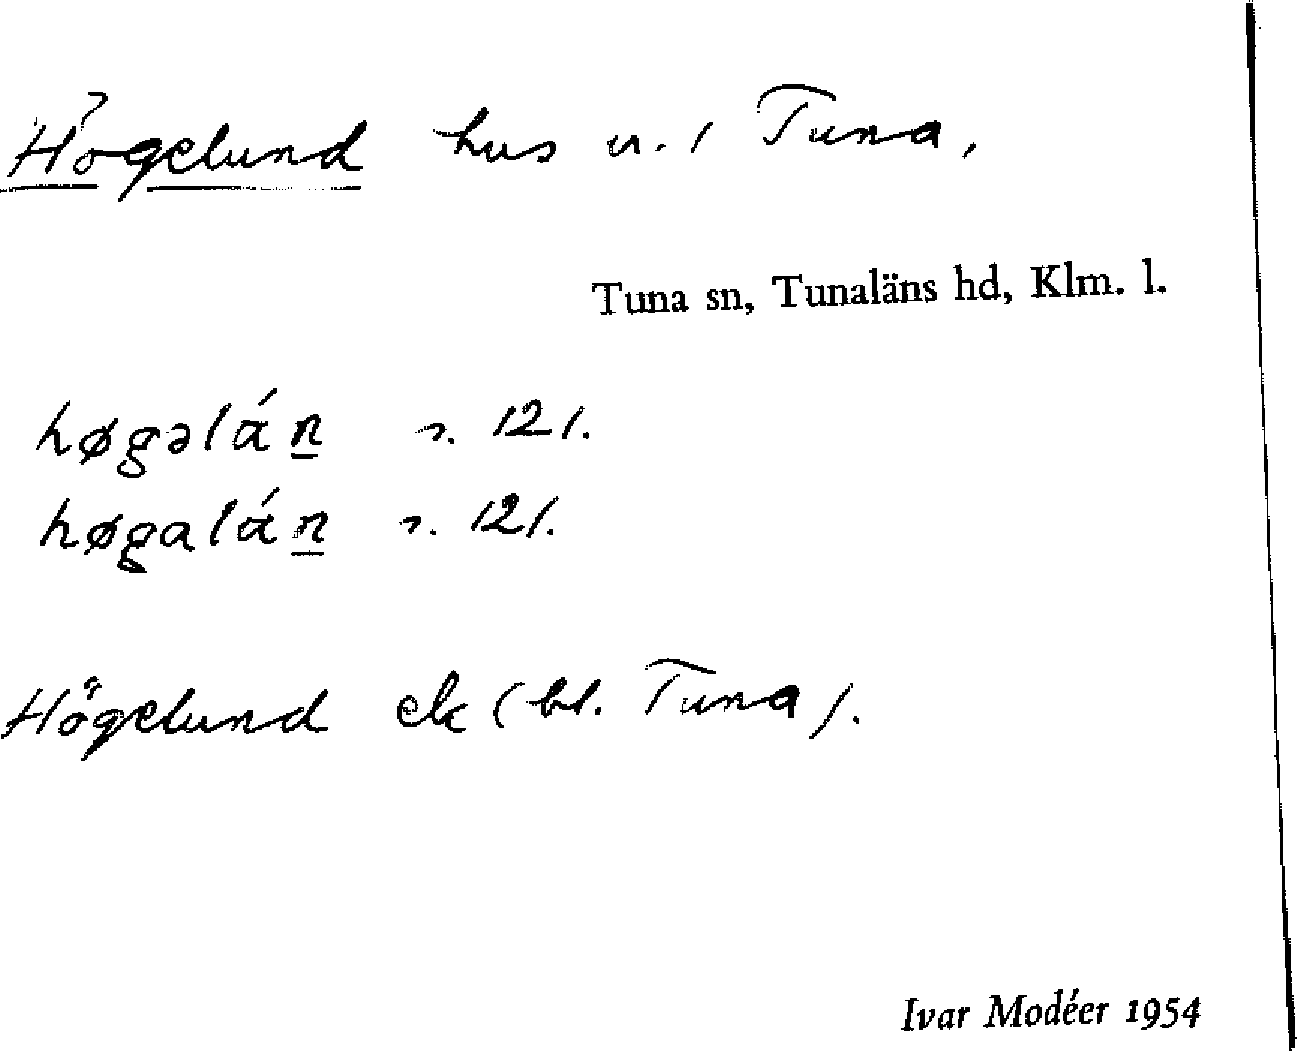 Högelund hus u. / Tuna,
Tuna sn, Tunaläns hd, Klm. l.
høgəlán̲ s. 121.
høgalán̲ s. 121.
Högelund ek (bl. Tuna).
Ivar Modéer 1954